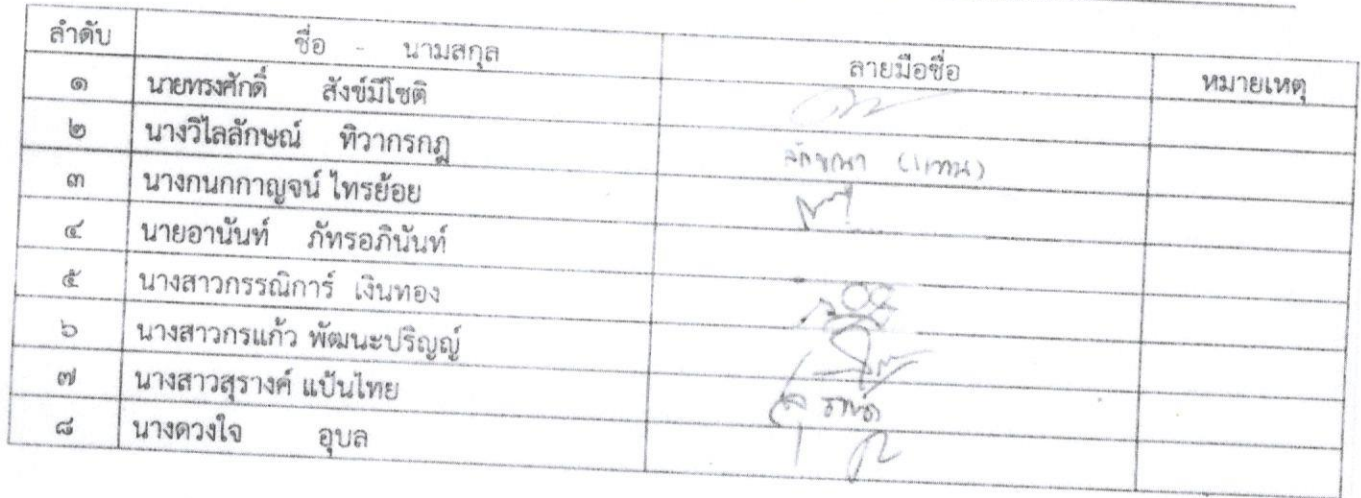 ลำดับ ชื่อ - นามสกุล ลายมือชื่อ หมายเหตุ
๑ นายทรงศักดิ์ สังข์มีโชติ
๒ นางวิไลลักษณ์ ทิวากรกฎ
๓ นางกนกกาญจน์ ไทรย้อย (แทน)
๔ นายอานันท์ ภัทรอภินันท์
๕ นางสาวกรรณิการ์ เงินทอง
๖ นางสาวกรแก้ว พัฒนะปริญญ์
๗ นางสาวสุรางค์ แป้นไทย
๘ นางดวงใจ อุบล